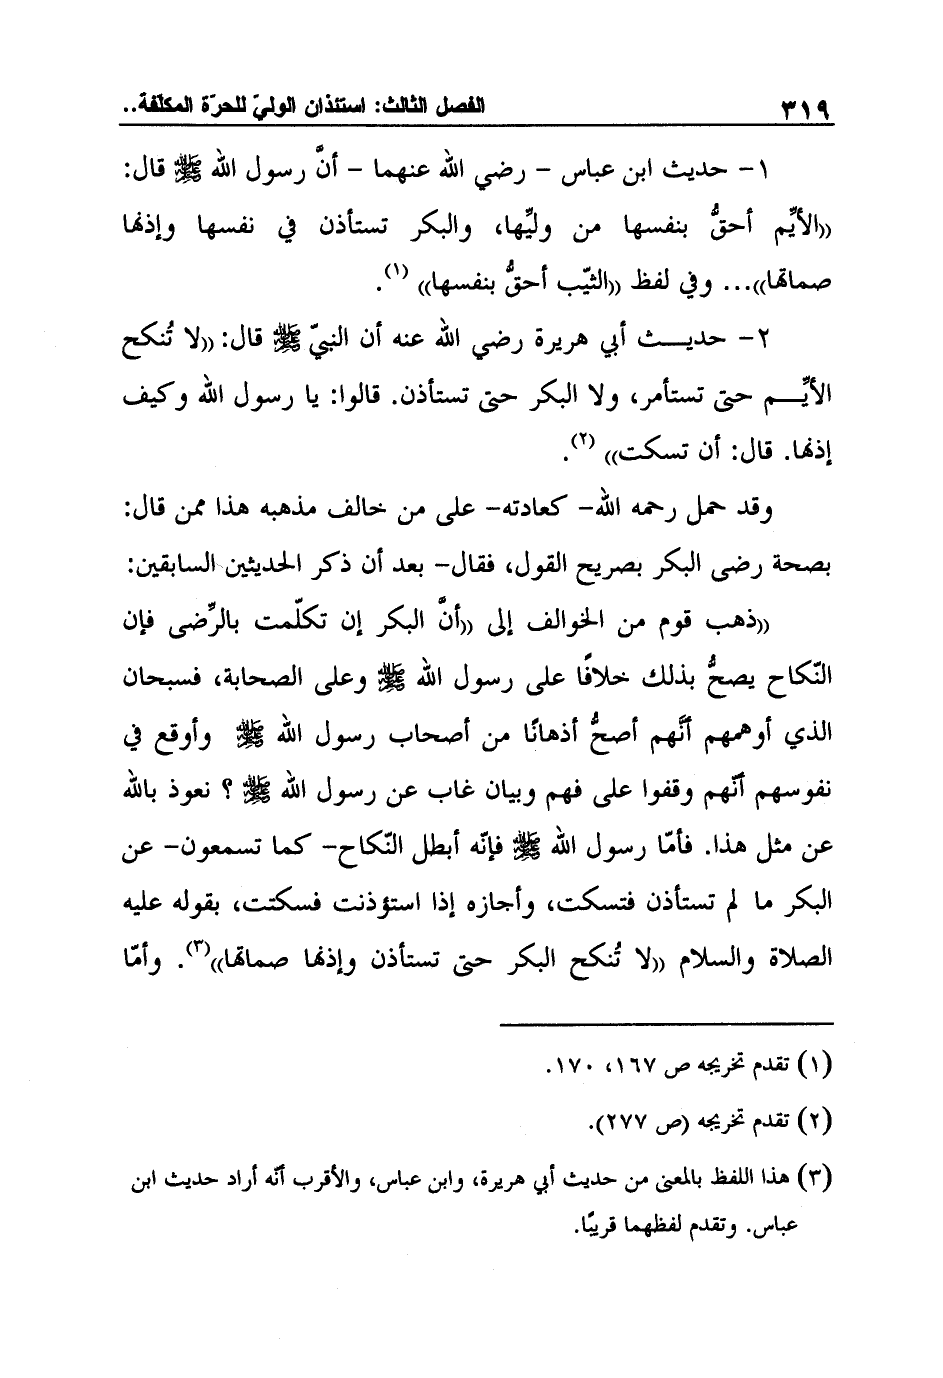 ٣١٩ الفصل الثالث: استئذان الوليّ للحرّة المكلّفة..
١- حديث ابن عباس - رضي الله عنهما - أنَّ رسول الله ﷺ قال:
((الأيِّم أحقُّ بنفسها من وليِّها، والبكر تستأذن في نفسها وإذنها
صماتها))... وفي لفظ ((الثيّب أحقُّ بنفسها)) (١).
٢- حديث أبي هريرة رضي الله عنه أن النبيّ ﷺ قال: ((لا تُنكح
الأيِّم حتى تستأمر، ولا البكر حتى تستأذن. قالوا: يا رسول الله وكيف
إذنها. قال: أن تسكت)) (٢).
وقد حمل رحمه الله- كعادته- على من خالف مذهبه هذا ممن قال:
بصحة رضى البكر بصريح القول، فقال- بعد أن ذكر الحديثين السابقين:
((ذهب قوم من الخوالف إلى ((أنَّ البكر إن تكلّمت بالرِّضى فإن
النّكاح يصحُّ بذلك خلافًا على رسول الله ﷺ وعلى الصحابة، فسبحان
الذي أوهمهم أنَّهم أصحُّ أذهانًا من أصحاب رسول الله ﷺ وأوقع في
نفوسهم أنّهم وقفوا على فهم وبيان غاب عن رسول الله ﷺ ؟ نعوذ بالله
عن مثل هذا. فأمّا رسول الله ﷺ فإنّه أبطل النّكاح- كما تسمعون- عن
البكر ما لم تستأذن فتسكت، وأجازه إذا استؤذنت فسكتت، بقوله عليه
الصلاة والسلام ((لا تُنكح البكر حتى تستأذن وإذنها صماتها))(٣). وأمّا
(١) تقدم تخريجه ص ١٦٧، ١٧٠.
(٢) تقدم تخريجه (ص ٢٧٧).
(٣) هذا اللفظ بالمعنى من حديث أبي هريرة، وابن عباس، والأقرب أنّه أراد حديث ابن
عباس. وتقدم لفظهما قريبًا.